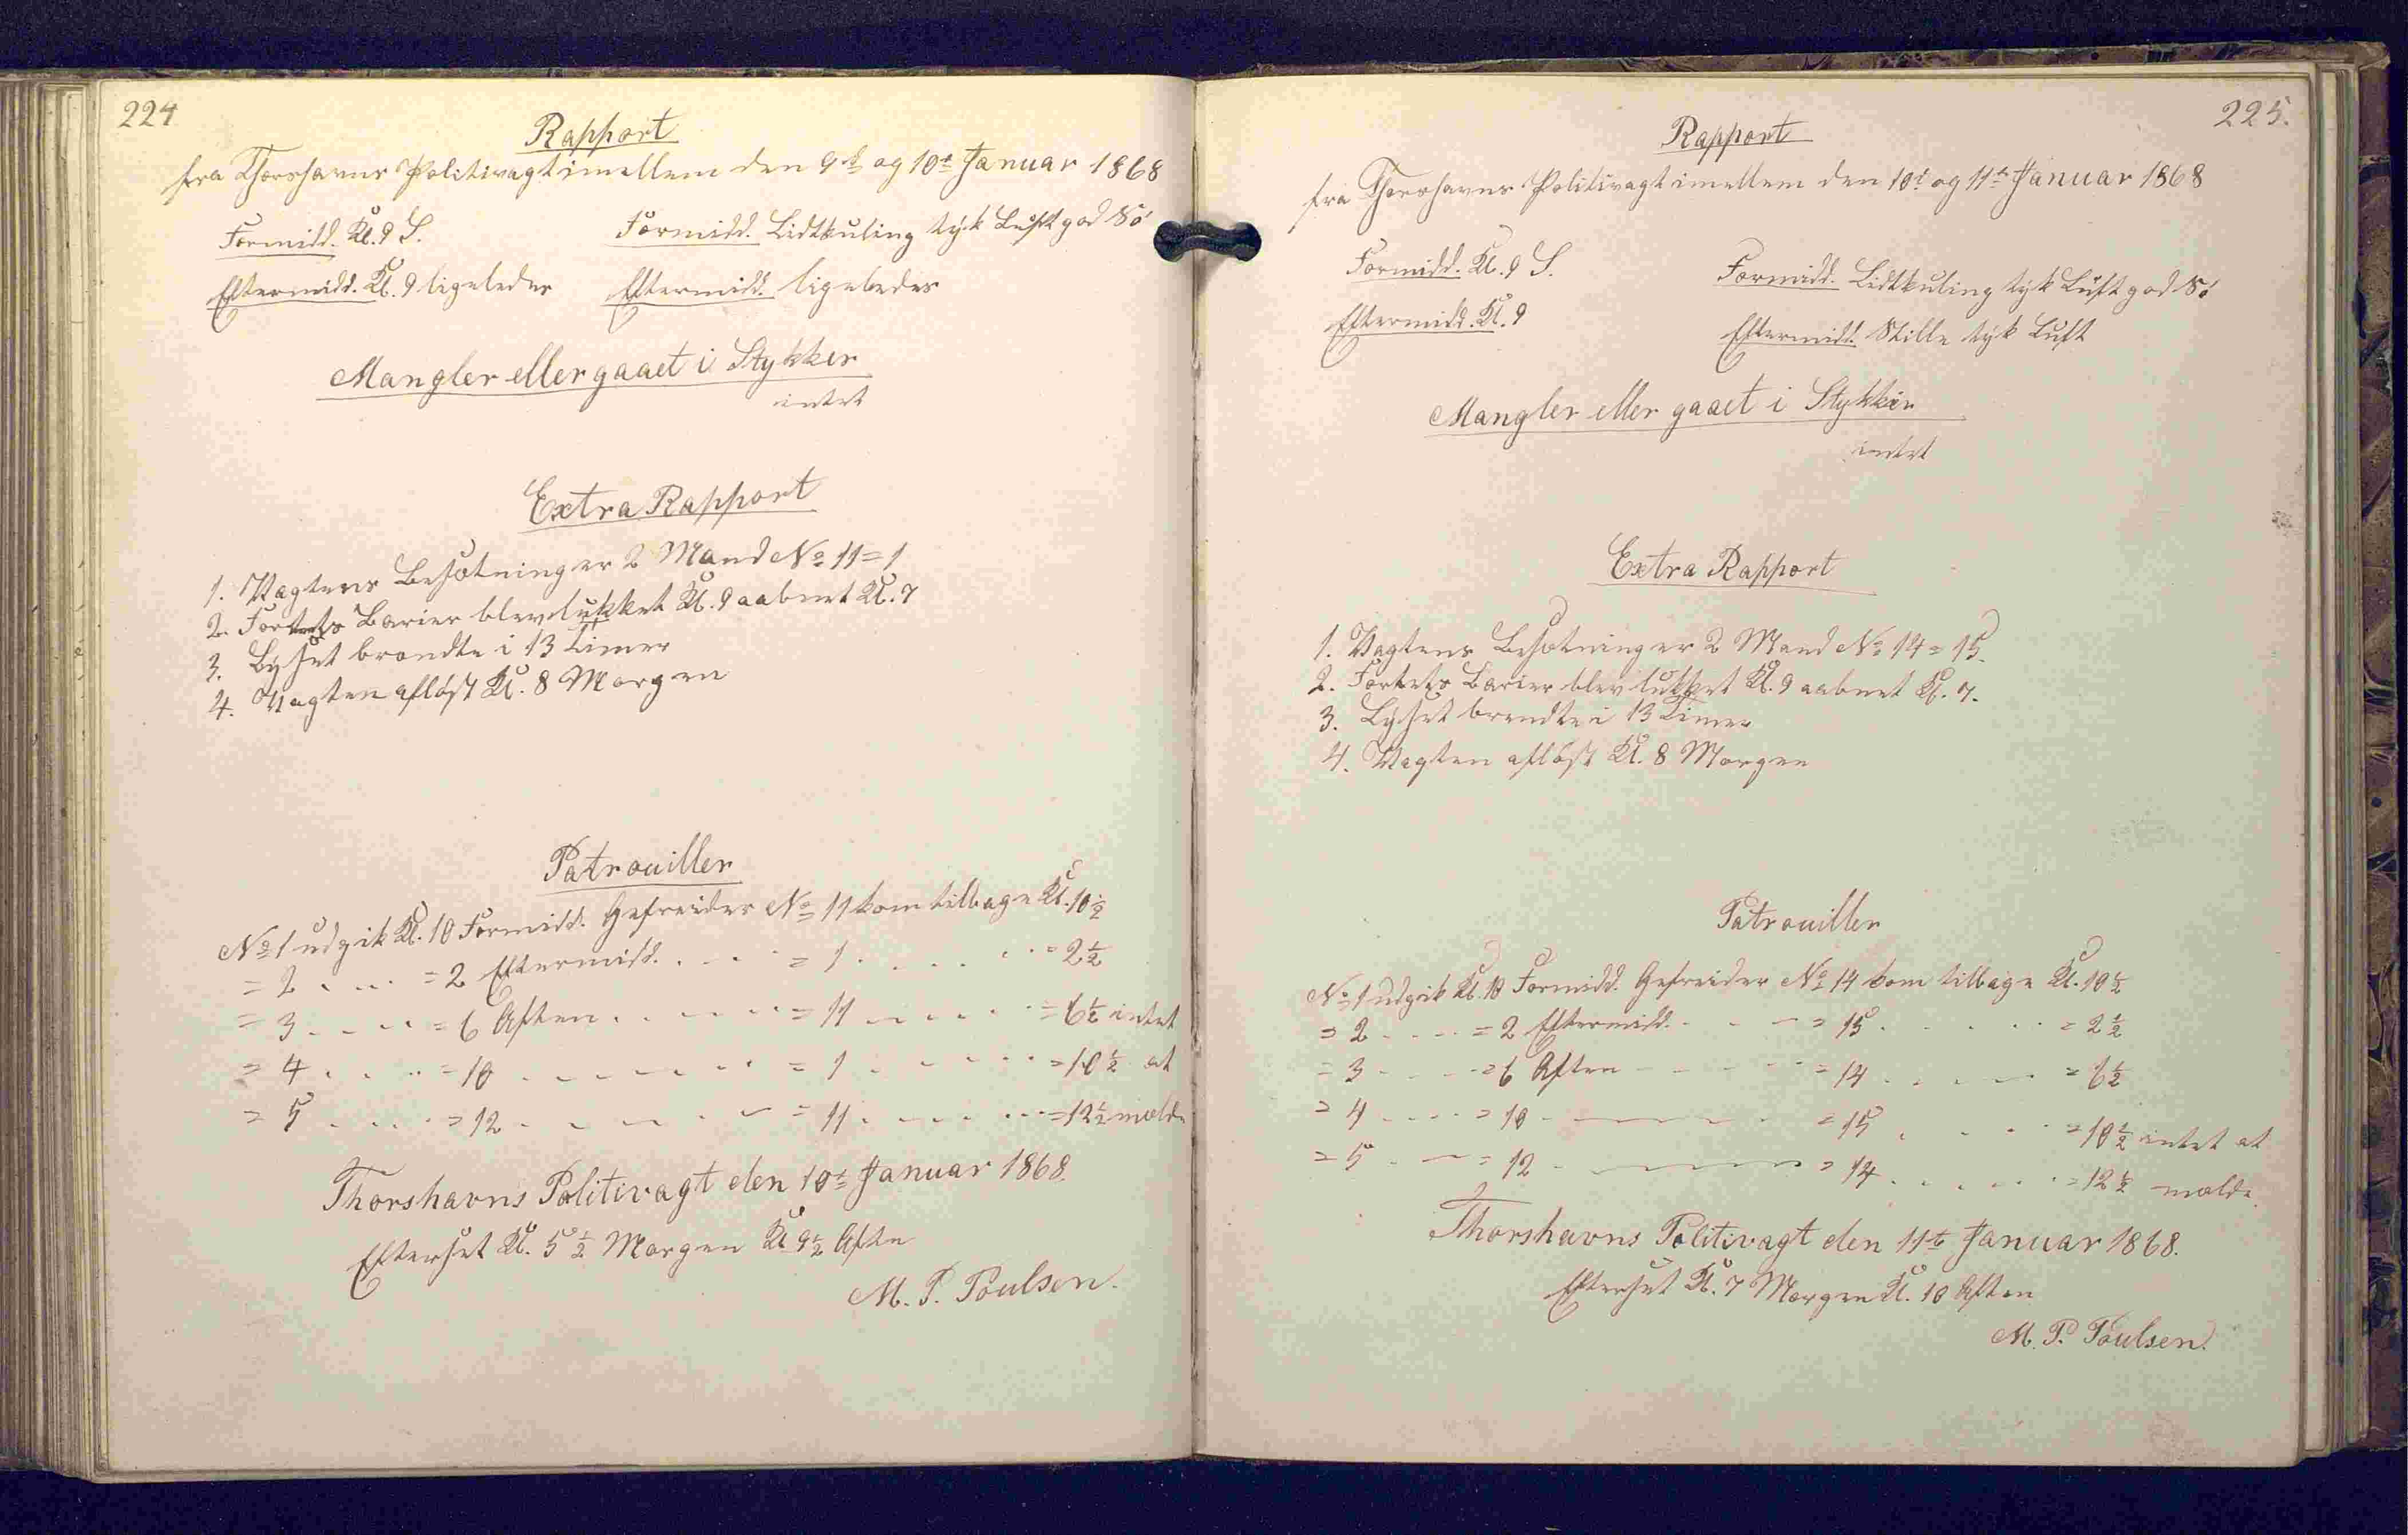 224
Rapport
fra Thorshavns Politivagt imellem den 9de og 10de Januar 1868
Formidd. Kl. 9 S. Formidd. Lidtkuling tyk Luft god Sö
Eftermidd. Kl. 9 ligeledes Eftermidd. ligeledes
Mangler eller gaaet i Stykker
intet
Extra Rapport
1. Vagtens Besætning er 2 Mand No 11 = 1
2. Fortets Barier blev lukket Kl. 9 aabnet Kl. 7
3. Lyset brændte i 13 Timer
4. Vagten aflöst Kl. 8 Morgen
Patrouiller
No 1 udgik Kl. 10 Formidd. Gefreider No 11 kom tilbage Kl. 10 1/2
= 2 . . . . = 2 Eftermidd. . . . = 1 . . . . . = 2 1/2
= 3 . . . . = 6 Aften . . . . = 11 . . . . . = 6 1/2 intet
= 4 . . . . = 10 . . . . . . = 1 . . . . . = 10 1/2 at
= 5 . . . . = 12 . . . . . . = 11 . . . . . = 12 1/2 melde
Thorshavns Politivagt den 10de Januar 1868.
Efterset Kl. 5 1/2 Morgen Kl 9 1/2 Aften
M. P. Poulsen.
225.
Rapport
fra Thorshavns Politivagt imellem den 10de og 11te Januar 1868
Formidd. Kl. 9 S. Formidd. Lidtkuling tyk Luft god Sö
Eftermidd. Kl. 9 Eftermidd. Stille tyk Luft
Mangler eller gaaet i Stykker
intet
Extra Rapport
1. Vagtens Besætning er 2 Mand No 14 = 15.
2. Fortets Barier blev lukket Kl. 9 aabnet Kl. 7.
3. Lyset brendte i 13 Timer
4. Vagten aflöst Kl. 8 Morgen
Patrouiller
No 1 udgik Kl. 10 Formidd. Gefreider No 14 kom tilbage Kl. 10 1/2
= 2 . . . . = 2 Eftermidd. . . . = 15 . . . . . = 2 1/2
= 3 . . . . = 6 Aften . . . . = 14 . . . . . = 6 1/2
= 4 . . . . = 10 . . . . . . = 15 . . . . . = 10 1/2 intet at
= 5 . . . . = 12 . . . . . . = 14 . . . . . = 12 1/2 melde.
Thorshavns Politivagt den 11te Januar 1868.
Efterset Kl. 7 Morgen Kl. 10 Aften
M. P. Poulsen.